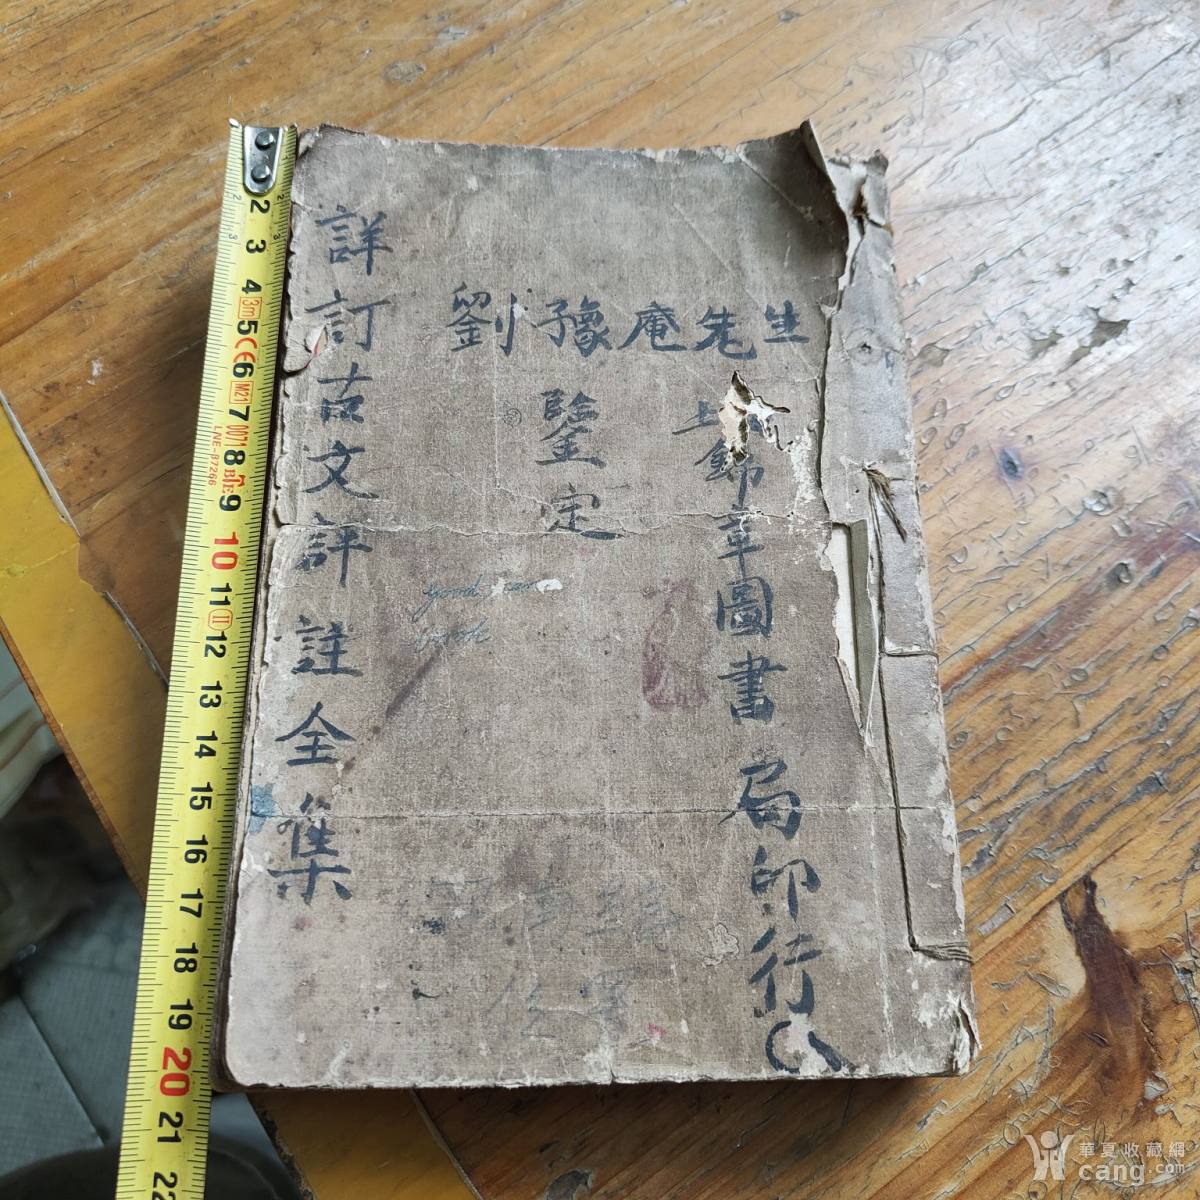 詳訂古文評註全集
劉豫庵先生
鑒定
上 錦章圖書局印行
good
book
2
3
4
3m
5
CE
6
M21
7
0071
LNE-β7266
8
9
10
11
II
12
13
14
15
16
17
18
19
20
21
22
華夏收藏網
cang.com